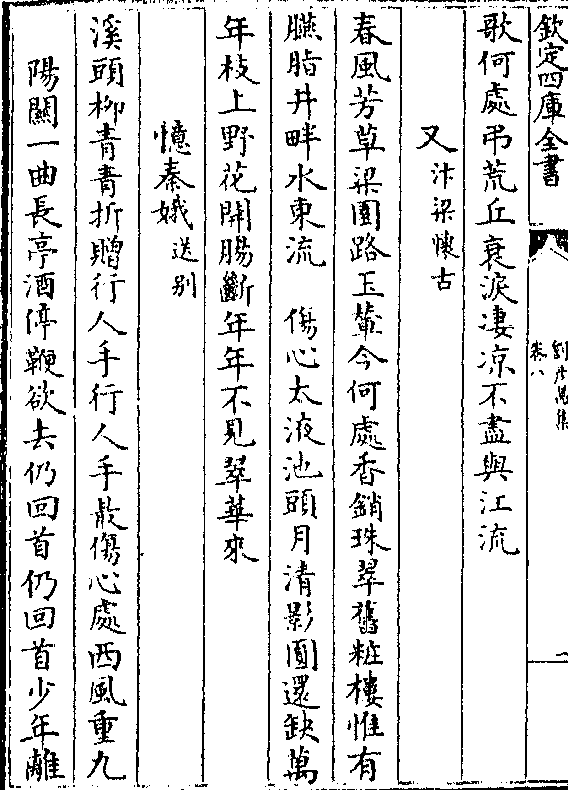 欽定四庫全書
劉彦昺集
卷八
歌何處弔荒丘衰淚凄凉不盡與江流
又汴梁懷古
春風芳草梁園路玉輦今何處香銷珠翠舊粧樓惟有
臙脂井畔水東流 傷心太液池頭月清影圓還缺萬
年枝上野花開腸斷年年不見翠華來
憶秦娥送别
溪頭柳青青折贈行人手行人手㪚傷心處西風重九
陽關一曲長亭酒停鞭欲去仍回首仍回首少年離